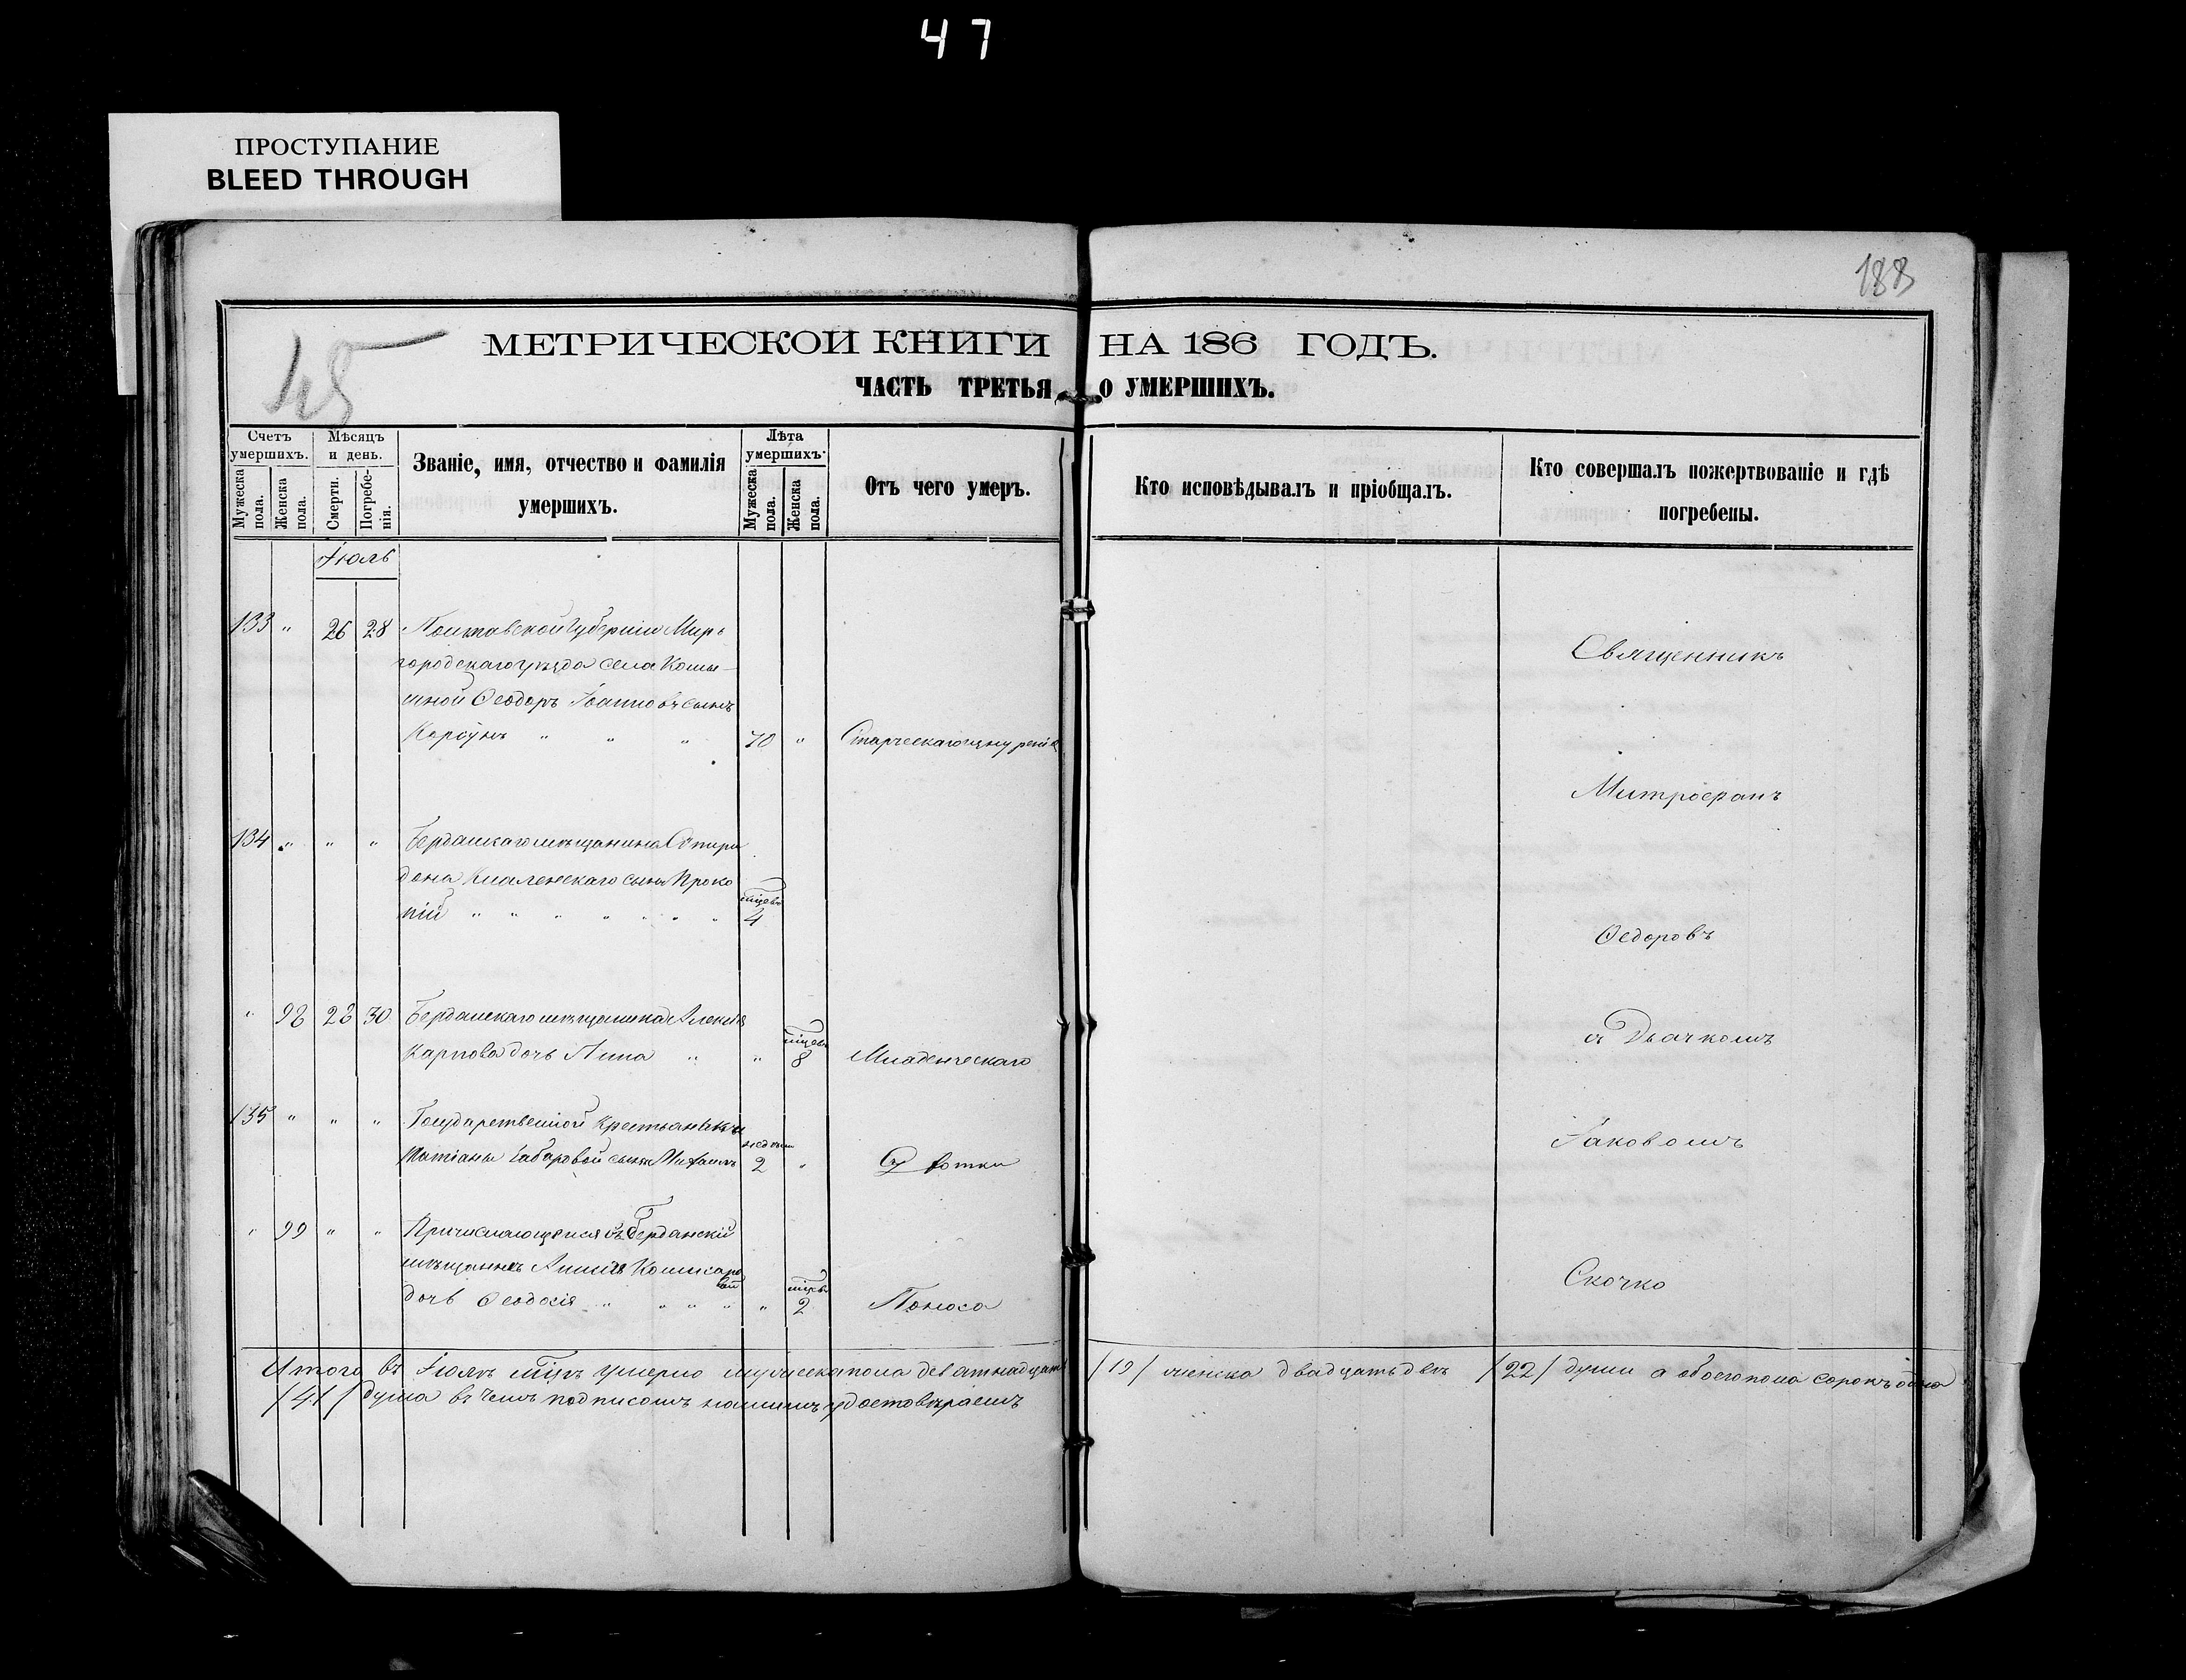 47
ПРОСТУПАНИЕ
BLEED THROUGH
188
МЕТРИЧЕСКОЙ КНИГИ НА 186 ГОДЪ.
ЧАСТЬ ТРЕТЬЯ О УМЕРШИХЪ.
Счетъ умершихъ.
Мужеска пола.
Женска пола.
Мѣсяцъ и день.
Смерти.
Погребенія.
Званіе, имя, отчество и фамилія умершихъ.
Лѣта умершихъ.
Мужеска пола.
Женска пола.
Отъ чего умеръ.
Кто исповѣдывалъ и пріобщалъ.
Кто совершалъ пожертвованіе и гдѣ погребены.
Іюль
133 " 26 28 Полтавской Губерніи Мир-
городскаго уѣзда села Комы-
шной Ѳеодоръ Іоанновъ сынъ
Корсунъ " " " 70 " Старческаго
Священникъ
Митрофанъ
134 " " " Бердянскаго мѣщанина Спири
дона сынъ Проко
пій " " " " " " " мѣсяц 4
Ѳедоровъ
" 98 28 30 Бердянскаго мѣщанина Алексія
Карпова дочь Анна " " 8 Младенческаго
съ Дьячкомъ
135 " " " Государственной крестьянки
Татіаны сынъ Михаилъ 2 "
Іаковомъ
" 99 " " Причисляющейся въ Бердянскій
мѣщанкѣ Комисаро
вой
дочь Ѳеодосія " " " " " 2 Поноса
Скочко
Итого въ Іюлѣ мѣсяцѣ умерло мужеска пола девятнадцать /19/ женска двадцать двѣ /22/ души а обоего пола сорокъ одна
/41/ душа въ чемъ подписомъ нашимъ удостовѣряемъ